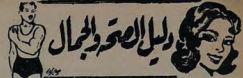 دليل الصحة والجمال